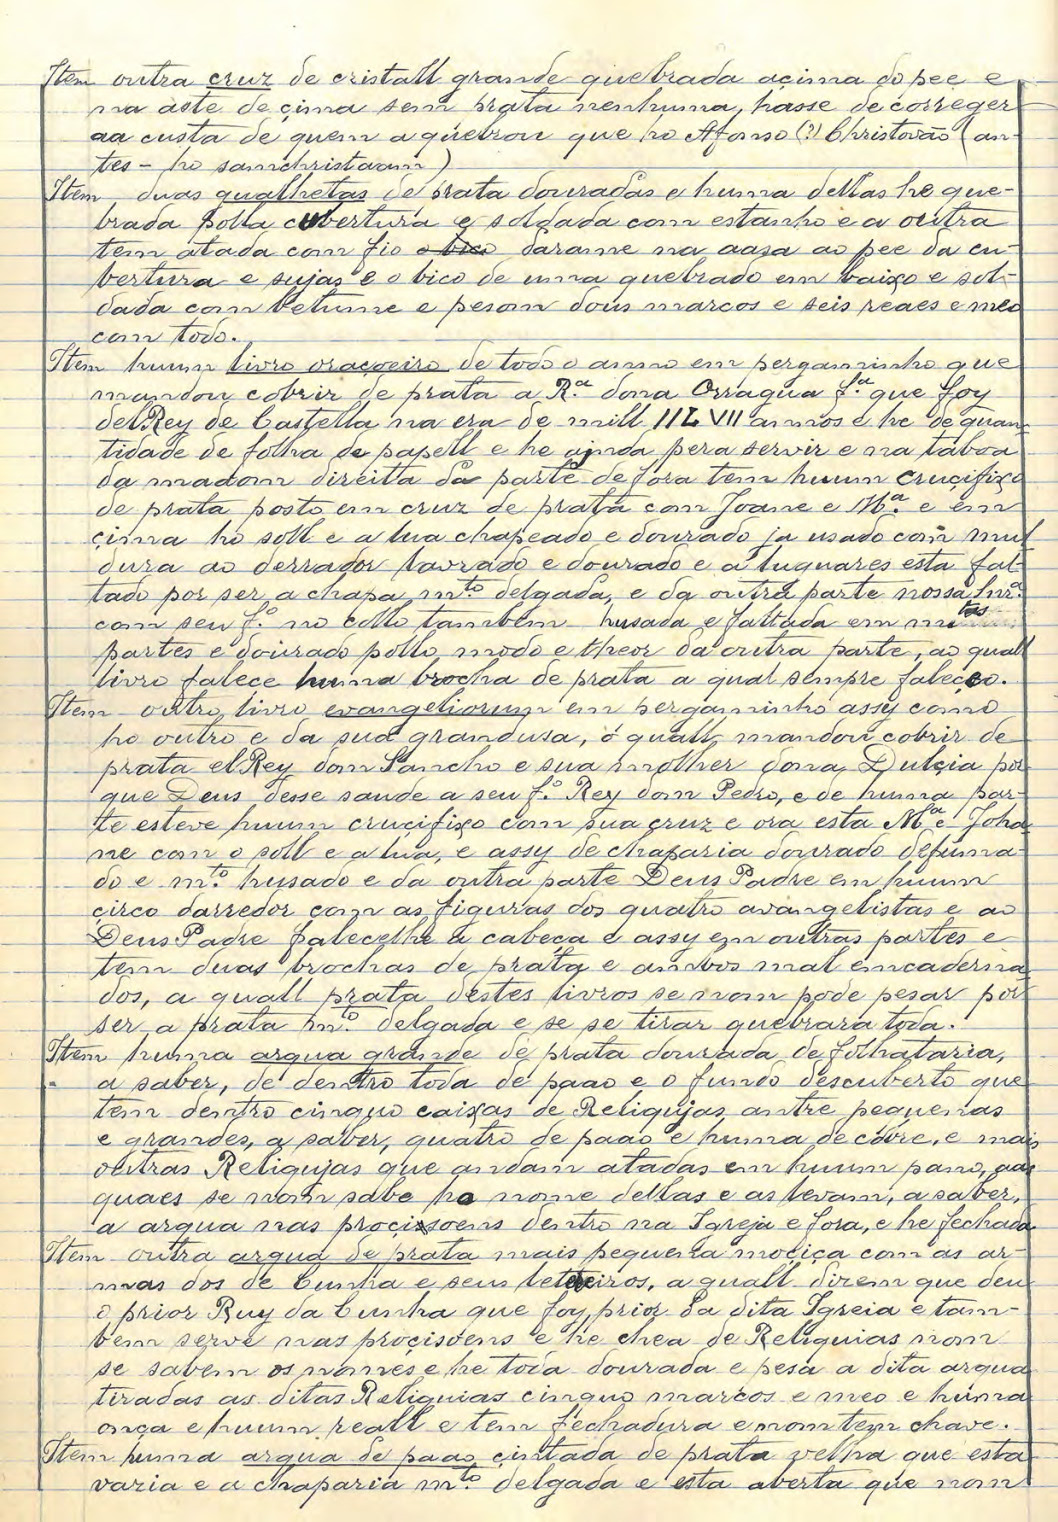 Item outra cruz de cristall grande quebrada açima do pee e
na aste de çima sem prata nenhuma, hasse de correger
aa custa de quem a quebrou que ho Afonso (?) Christovão (an-
tes - ho samchristavam)
Item duas gualhetas de prata douradas e huma dellas he que-
brada polla cubertura e soldada com estanho e a outra
tem atada com fio o bico darame na aasa ao pee da cu-
bertura e sujas e o bico de uma quebrado em baixo e sol-
dada com betume e pesam dous marcos e seis reaes e meo
com todo.
Item huum livro oraçoeiro de todo o anno em pergaminho que
mandou cobrir de prata a Rª. dona Orragua fª. que foy
delRey de Castella na era de mill IILVII annos e he de quan-
tidade de folha de papell e he ajnda pera servir e na taboa
da maaom direita da parte de fora tem huum cruçifiço
de prata posto em cruz de prata com Joane e Mª. e em
çima ho soll e a lua chapeado e dourado ja usado com mul
dura ao derrador lavrado e dourado e a luguares esta fal-
tado por ser a chapa mto. delgada, e da outra parte nossa Snrª.
com seu fº. no collo tambem husada e faltada em mtas
partes e dourado pollo modo e theor da outra parte, ao quall
livro falece huma brocha de prata a qual sempre faleceo.
Item outro livro evangeliorum em pergaminho assy como
ho outro e da sua grandusa, o quall mandou cobrir de
prata elRey dom Sancho e sua molher dona Dulçia por
que Deus desse saude a seu fº. Rey dom Pedro, e de huma par-
te esteve huum crucifiço com sua cruz e ora esta Mª e Joha-
ne com o soll e a lua, e assy de chaparia dourado defuma-
do e mto. husado e da outra parte Deus Padre em huum
çirco darredor com as figuras dos quatro avangelistas e ao
Deus Padre falecelhe a cabeça e assy em outras partes e
tem duas brochas de prata e ambos mal emcaderna-
dos, a quall prata destes livros se nom pode pesar por
ser a prata mto. delgada e se se tirar quebrara toda.
Item huma arqua grande de prata dourada de folhataria,
a saber, de dentro toda de paao e o fundo descuberto que
tem dentro cinquo caixas de Reliqujas antre pequenas
e grandes, a saber, quatro de paao e huma de cobre, e mais
outras Reliqujas que andam atadas em huum pano, aas
quaes se nom sabe ho nome dellas e as levam, a saber,
a arqua nas proçissoens dentro na Igreja e fora, e he fechada
Item outra arqua de prata mais pequena moçiça com as ar-
mas dos de Cunha e seus letereiros, a quall dizem que deu
o prior Ruy da Cunha que foy prior da dita Igreia e tam-
bem serve nas proçisoens e he chea de Reliquias nom
se sabem os nomes e he toda dourada e pesa a dita arqua
tiradas as ditas Reliquias cinquo marcos e meo e huma
onça e huum reall e tem fechadura e nom tem chave.
Item huma arqua de paao çintada de prata velha que esta
varia e a chaparia mto. delgada e esta aberta que nom